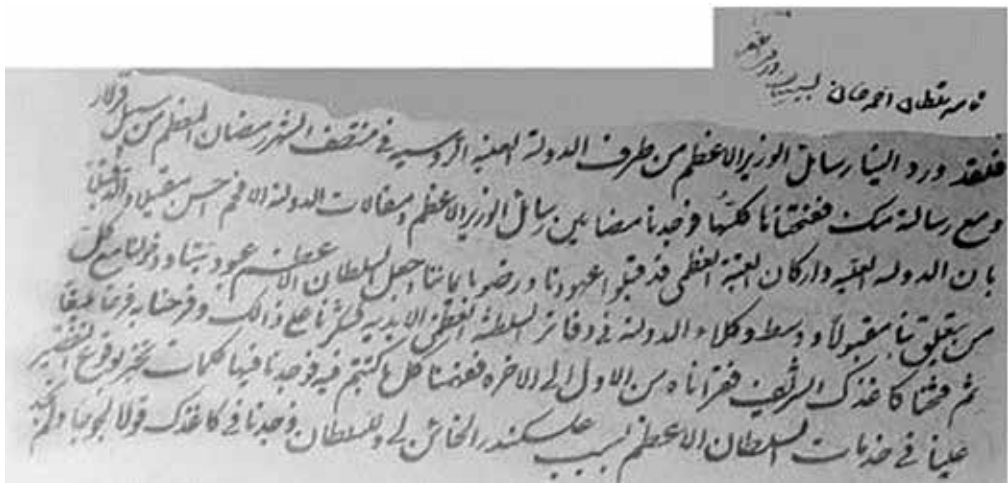 نامه سلطان احمد خان
فلقد ورد الينا رسائل الوزير الاعظم من طرف الدولة العلية الروسيه في منتصف الشهر رمضان المعظم من سبيل قزلار
ومع رسالة منك ففتحناها كلّها فوجدنا مضامين رسائل الوزير الاعظم ومقالات الدولة الافخم احسن مقيلا
بان الدولة العليه واركان العتبة العظمى قد قبلوا عهودنا ورضوا بماننا وجعل السلطان الاعظم عبوديتنا ودخولنا مع كل
من يتعلق بنا مقبولاً ووسط وكلاء الدولة في دفاتر السلطنة العظمى الابدية فشكرنا على ذالك وفرحنا به فرحا عميقا
ثم فتحنا كاغذك الشريف فقرأناه من الاول الى الاخره ففهمنا كل ما كتبتم فيه فوجدنا فيها كلمات تخبر وقوع التقصير
علينا في خدمات السلطان الاعظم بسبب علسكندر الخائن لي وللسلطان وجدنا في كاغذك قولا موجبا ولم نجد